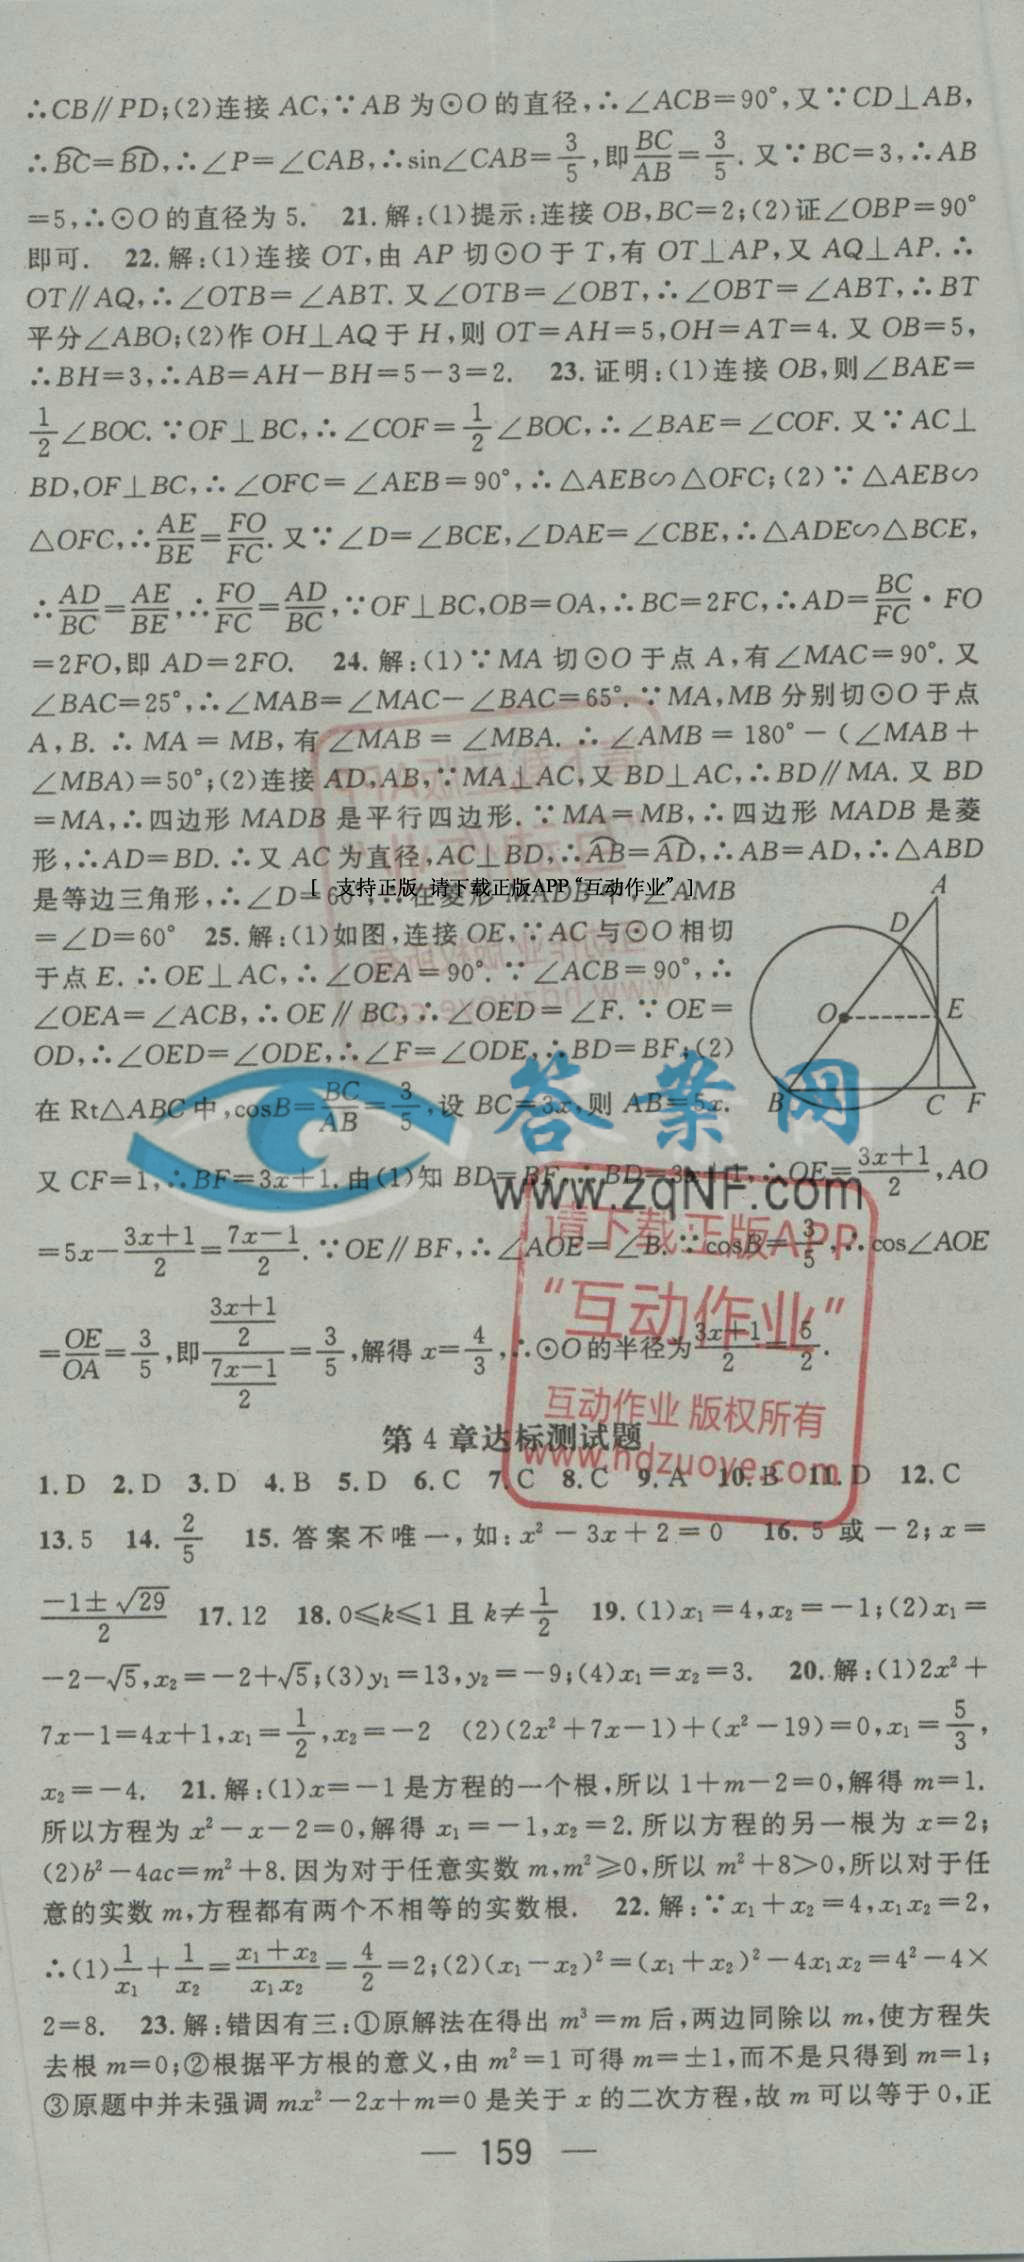 ∴CB∥PD;(2)连接 AC,∵AB 为⊙O 的直径,∴∠ACB=90°,又∵CD⊥AB,
∴BC⌒=BD⌒,∴∠P=∠CAB,∴sin∠CAB=3/5,即BC/AB=3/5. 又∵BC=3,∴AB
=5,∴⊙O 的直径为 5. 21.解:(1)提示:连接 OB,BC=2;(2)证∠OBP=90°
即可. 22.解:(1)连接 OT,由 AP 切⊙O 于 T,有 OT⊥AP,又 AQ⊥AP. ∴
OT∥AQ,∴∠OTB=∠ABT. 又∠OTB=∠OBT,∴∠OBT=∠ABT,∴BT
平分∠ABO;(2)作 OH⊥AQ 于 H,则 OT=AH=5,OH=AT=4. 又 OB=5,
∴BH=3,∴AB=AH-BH=5-3=2. 23.证明:(1)连接 OB,则∠BAE=
1/2∠BOC.∵OF⊥BC,∴∠COF=1/2∠BOC,∴∠BAE=∠COF. 又∵AC⊥
BD,OF⊥BC,∴∠OFC=∠AEB=90°,∴△AEB∽△OFC;(2)∵△AEB∽
△OFC,∴AE/BE=FO/FC.又∵∠D=∠BCE,∠DAE=∠CBE,∴△ADE∽△BCE,
∴AD/BC=AE/BE,∴FO/FC=AD/BC,∵OF⊥BC,OB=OA,∴BC=2FC,∴AD=BC/FC·FO
=2FO,即 AD=2FO. 24.解:(1)∵MA 切⊙O 于点 A,有∠MAC=90°. 又
∠BAC=25°,∴∠MAB=∠MAC-∠BAC=65°.∵MA,MB 分别切⊙O 于点
A,B. ∴MA=MB,有∠MAB=∠MBA. ∴∠AMB=180°-(∠MAB+
∠MBA)=50°;(2)连接 AD,AB,∵MA⊥AC,又 BD⊥AC,∴BD∥MA. 又 BD
=MA,∴四边形 MADB 是平行四边形. ∵MA=MB,∴四边形 MADB 是菱
形,∴AD=BD. ∴又 AC 为直径,AC⊥BD,∴AB⌒=AD⌒,∴AB=AD,∴△ABD
是等边三角形,∴∠D=60°,∴在菱形 MADB 中,∠AMB
[ 支持正版 请下载正版APP“互动作业” ]
=∠D=60° 25.解:(1)如图,连接 OE,∵AC 与⊙O 相切
于点 E. ∴OE⊥AC,∴∠OEA=90°. ∵∠ACB=90°,∴
∠OEA=∠ACB,∴OE∥BC,∴∠OED=∠F. ∵OE=
OD,∴∠OED=∠ODE,∴∠F=∠ODE,∴BD=BF;(2)
在 Rt△ABC 中,cosB=BC/AB=3/5,设 BC=3x,则 AB=5x.
A
D
O
E
B
C
F
又 CF=1,∴BF=3x+1.由(1)知 BD=BF,∴BD=3x+1,∴OE=(3x+1)/2,AO
=5x-(3x+1)/2=(7x-1)/2.∵OE∥BF,∴∠AOE=∠B.∵cosB=3/5,∴cos∠AOE
=OE/OA=3/5,即((3x+1)/2)/((7x-1)/2)=3/5,解得 x=4/3,∴⊙O 的半径为(3x+1)/2=5/2.
答案网
www.zqNF.com
请下载正版APP
“互动作业”
互动作业 版权所有
www.hdzuoye.com
第 4 章达标测试题
1.D 2.D 3.D 4.B 5.D 6.C 7.C 8.C 9.A 10.B 11.D 12.C
13.5 14.2/5 15.答案不唯一,如:x²-3x+2=0 16.5 或-2;x=
(-1±√29)/2 17.12 18.0≤k≤1 且 k≠1/2 19.(1)x₁=4,x₂=-1;(2)x₁=
-2-√5,x₂=-2+√5;(3)y₁=13,y₂=-9;(4)x₁=x₂=3. 20.解:(1)2x²+
7x-1=4x+1,x₁=1/2,x₂=-2 (2)(2x²+7x-1)+(x²-19)=0,x₁=5/3,
x₂=-4. 21.解:(1)x=-1 是方程的一个根,所以 1+m-2=0,解得 m=1.
所以方程为 x²-x-2=0,解得 x₁=-1,x₂=2.所以方程的另一根为 x=2;
(2)b²-4ac=m²+8.因为对于任意实数 m,m²≥0,所以 m²+8>0,所以对于任
意的实数 m,方程都有两个不相等的实数根. 22.解:∵x₁+x₂=4,x₁x₂=2,
∴(1)1/x₁+1/x₂=(x₁+x₂)/(x₁x₂)=4/2=2;(2)(x₁-x₂)²=(x₁+x₂)²-4x₁x₂=4²-4×
2=8. 23.解:错因有三:①原解法在得出 m³=m 后,两边同除以 m,使方程失
去根 m=0;②根据平方根的意义,由 m²=1 可得 m=±1,而不是只得到 m=1;
③原题中并未强调 mx²-2x+m=0 是关于 x 的二次方程,故 m 可以等于 0,正
— 159 —